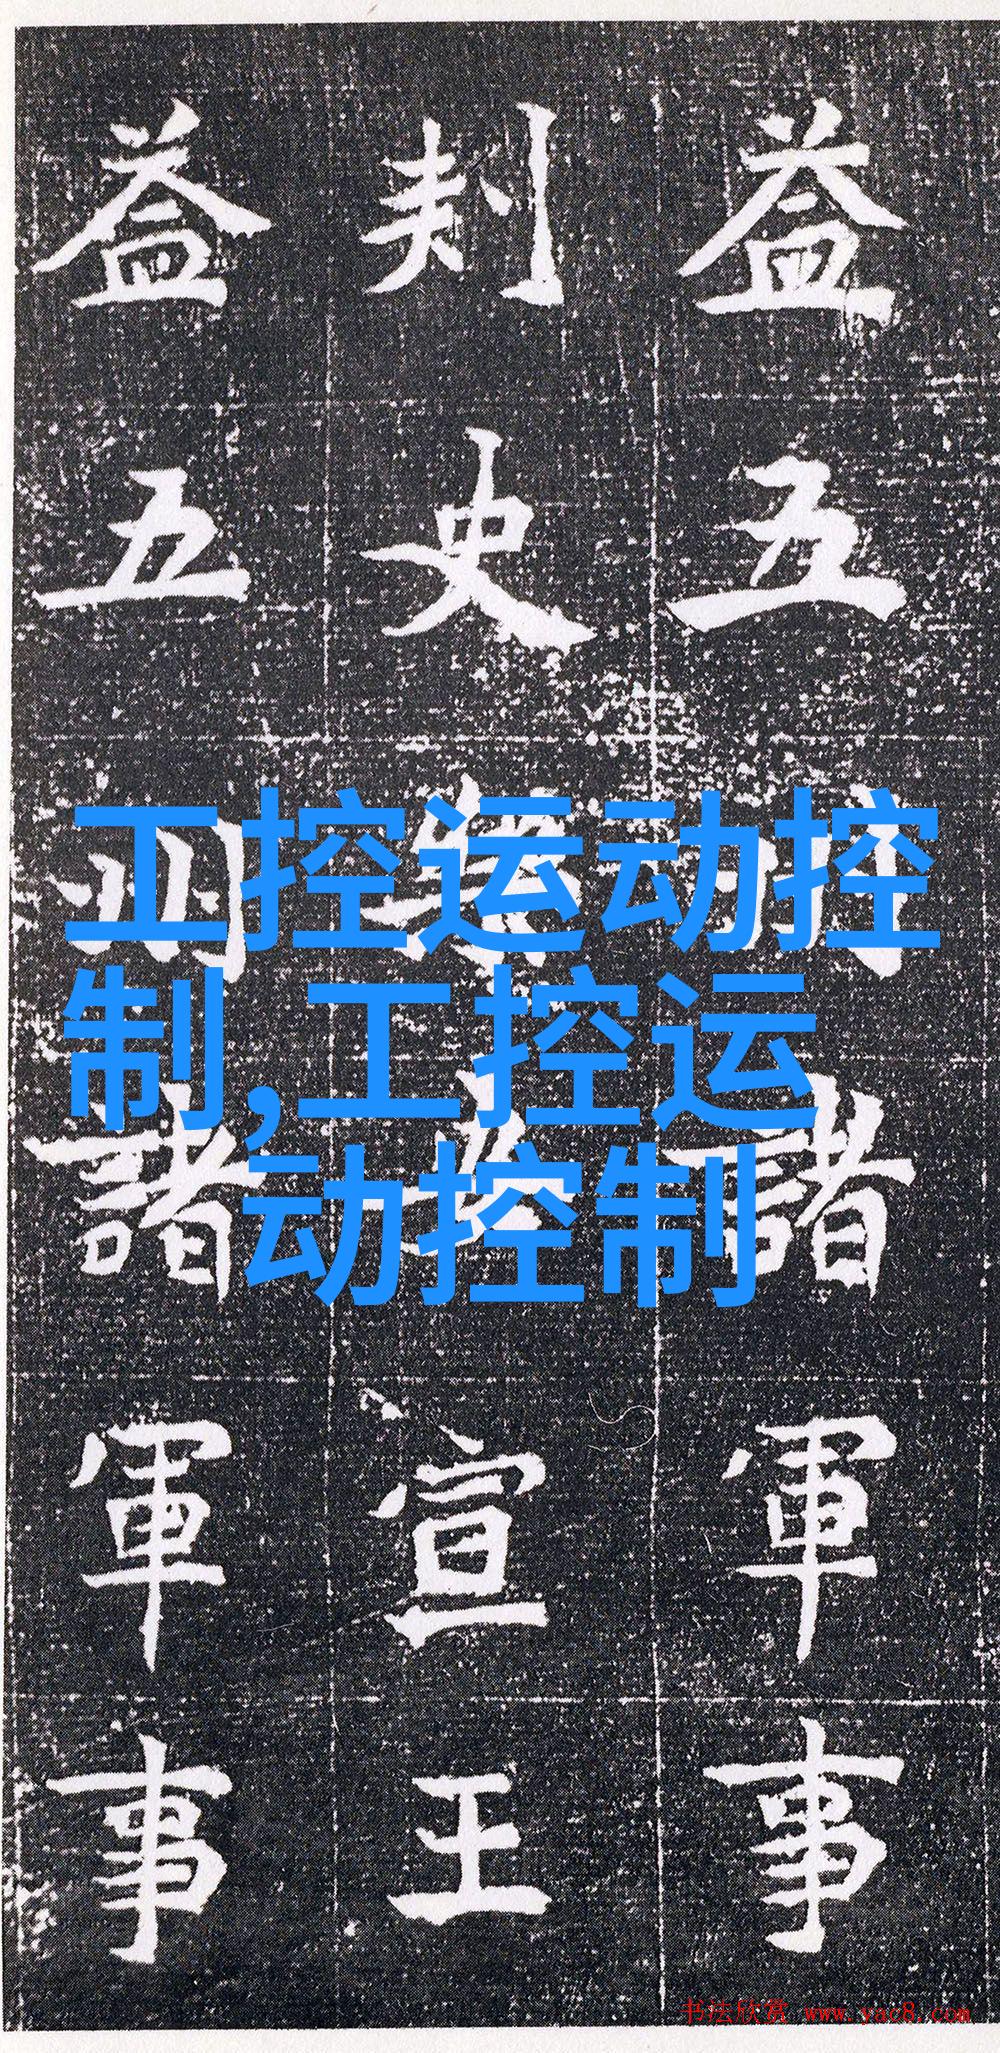 益五州諸軍事
刾史宣王
益五州諸軍事
工控运动控
制,工控运
动控制
书法欣赏 www.yac8.com